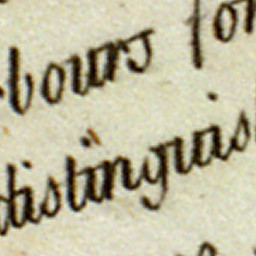 bours for
distinguis